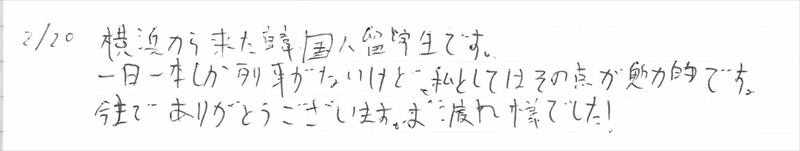 2/20 横浜から来た韓国人留学生です。
一日一本しか列車がないけど、私としてはその点が魅力的です。
今まで ありがとうございます。お疲れ様でした!